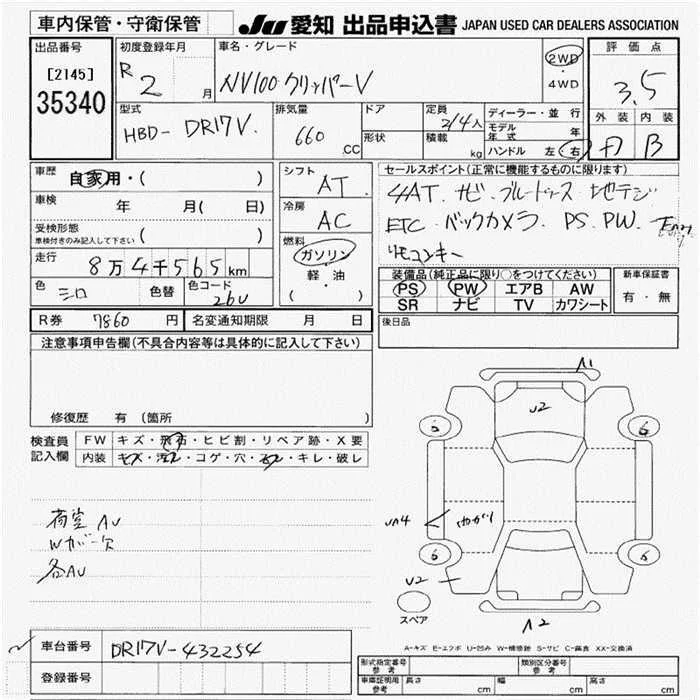 車内保管・守衛保管
JU 愛知 出品申込書 JAPAN USED CAR DEALERS ASSOCIATION
出品番号
[2145]
35340
初度登録年月
R 2 月
車名・グレード
NV100 クリッパーV
2WD
・
4WD
評価点
3.5
外装 内装
D B
型式
HBD- DR17V.
排気量
660 CC
ドア
形状
定員
2/4人
積載 kg
ディーラー・並行
モデル年式 年
ハンドル 左・右
車歴
自家用・( )
車検 年 月( 日)
受検形態
車検付きのみ記入して下さい ( )
走行 8万4千565km
色 シロ 色替 色コード 26U
シフト
AT.
冷房
AC
燃料
ガソリン
・
軽・油
( )
セールスポイント(正常に機能するものに限ります)
4AT. ナビ. ブルートゥース 地デジ
ETC. バックカメラ. PS. PW.
リモコンキー
装備品(純正品に限り○をつけてください)
PS PW エアB AW
SR ナビ TV カワシート
新車保証書
有・無
R券 7860 円 名変通知期限 月 日
後日品
注意事項申告欄(不具合内容等は具体的に記入して下さい)
修復歴 有 (箇所
検査員記入欄
FW キズ・飛石・ヒビ割・リペア跡・X要
内装 キズ・汚れ・コゲ・穴・スレ・キレ・破レ
荷室 AU
Wガー欠
各AU
A1
U2
6 6
6 6
U2
A2
スペア
A-キズ E-エクボ U-凹み W-補修跡 S-サビ C-腐食 XX-交換済
車台番号 DR17V-432254
登録番号
形式指定番号
参考
類別区分番号
参考
車庫証明用
参考
長さ cm 幅 cm 高さ cm